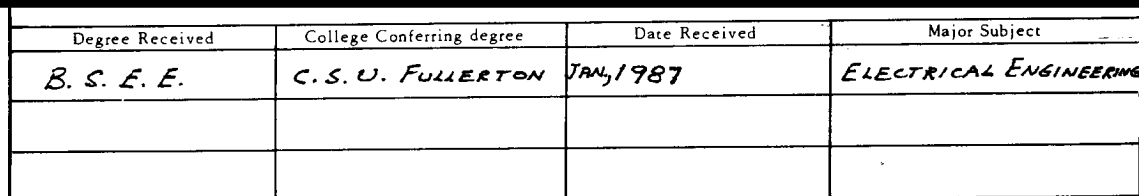 Degree Received College Conferring degree Date Received Major Subject
B. S. E. E. C. S. U. FULLERTON JAN, 1987 ELECTRICAL ENGINEERING